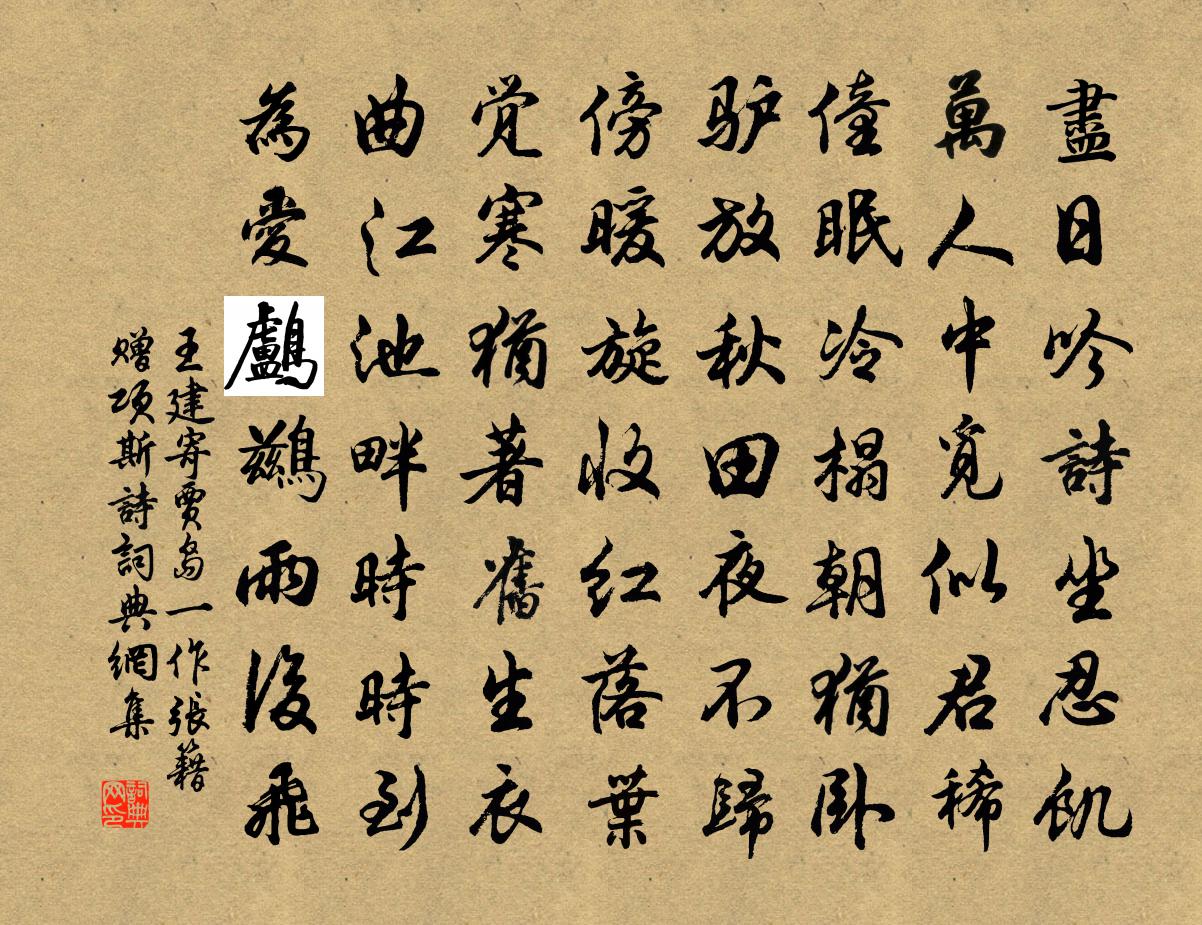 盡日吟詩坐忍飢
萬人中覓似君稀
僮眠冷榻朝猶卧
驴放秋田夜不歸
傍暖旋收红落葉
觉寒猶著舊生衣
曲江池畔時時到
為愛鸕鷀雨後飛
王建寄贾岛一作張籍
赠项斯詩詞典網集
詞典网印